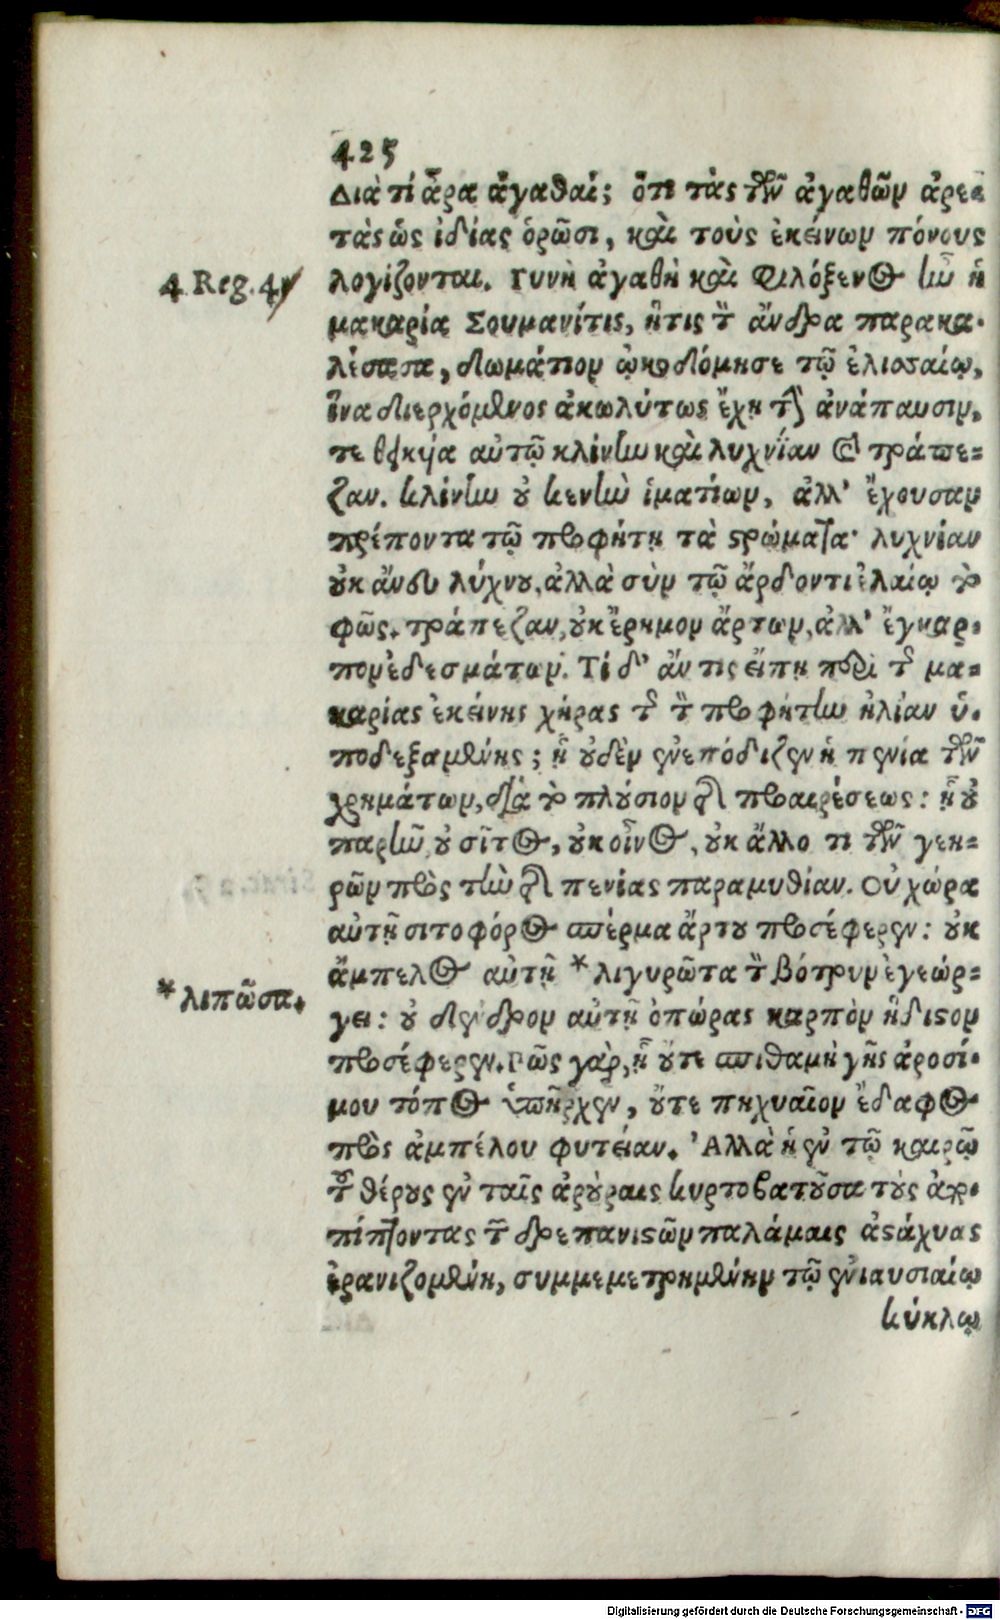 425
Διὰ τί ἄρα ἀγαθαί; ὅτι τὰς τῶν ἀγαθῶν ἀρε-
τὰς ὡς ἰδίας ὁρῶσι, καὶ τοὺς ἐκείνων πόνους
4. Reg. 4
λογίζονται. Γυνὴ ἀγαθὴ καὶ φιλόξενος ἦν ἡ
μακαρία Σουμανίτις, ἥτις τὸν ἄνδρα παρακα-
λέσασα, δωμάτιον ᾠκοδόμησε τῷ ἑλισσαίῳ,
ἵνα διερχόμενος ἀκωλύτως ἔχῃ τὴν ἀνάπαυσιν,
τεθεικυῖα αὐτῷ κλίνην καὶ λυχνίαν καὶ τράπε-
ζαν. κλίνην οὐ κενὴν ἱματίων, ἀλλ' ἔχουσαν
πρέποντα τῷ προφήτῃ τὰ στρώματα· λυχνίαν
οὐκ ἄνευ λύχνου, ἀλλὰ σὺν τῷ ἄρδοντι ἐλαίῳ τὸ
φῶς. τράπεζαν, οὐκ ἔρημον ἄρτων, ἀλλ' ἔγκαρ-
πον ἐδεσμάτων. Τί δ' ἄν τις εἴπῃ περὶ τῆς μα-
καρίας ἐκείνης χήρας τῆς τὸν προφήτην ἠλίαν ὑ-
ποδεξαμένης; ᾗ οὐδὲν ἐνεπόδιζεν ἡ πενία τῶν
χρημάτων, διὰ τὸ πλούσιον τῆς προαιρέσεως: ᾗ οὐ
παρῆν οὐ σῖτος, οὐκ οἶνος, οὐκ ἄλλο τι τῶν γεη-
ρῶν πρὸς τὴν τῆς πενίας παραμυθίαν. Οὐ χώρα
αὐτῇ σιτοφόρος σπέρμα ἄρτου προσέφερεν: οὐκ
ἄμπελος αὐτῇ * λιγυρῶτα τὸν βότρυν ἐγεώρ-
* λιπῶσα.
γει: οὐ δένδρον αὐτῇ ὀπώρας καρπὸν ἥδιστον
προσέφερεν. πῶς γὰρ, ᾗ οὔτε σπιθαμὴ γῆς ἀροσί-
μου τόπος ὑπῆρχεν, οὔτε πηχυαῖον ἔδαφος
πρὸς ἀμπέλου φυτείαν. Ἀλλὰ ἡ ἐν τῷ καιρῷ
τοῦ θέρους ἐν ταῖς ἀρούραις κυρτοβατοῦσα τοὺς ἀπο-
πίπτοντας τῶν δρεπανιστῶν παλάμαις ἀστάχυας
ἐρανιζομένη, συμμεμετρημένην τῷ ἐνιαυσιαίῳ
κύκλῳ
Digitalisierung gefördert durch die Deutsche Forschungsgemeinschaft - DFG